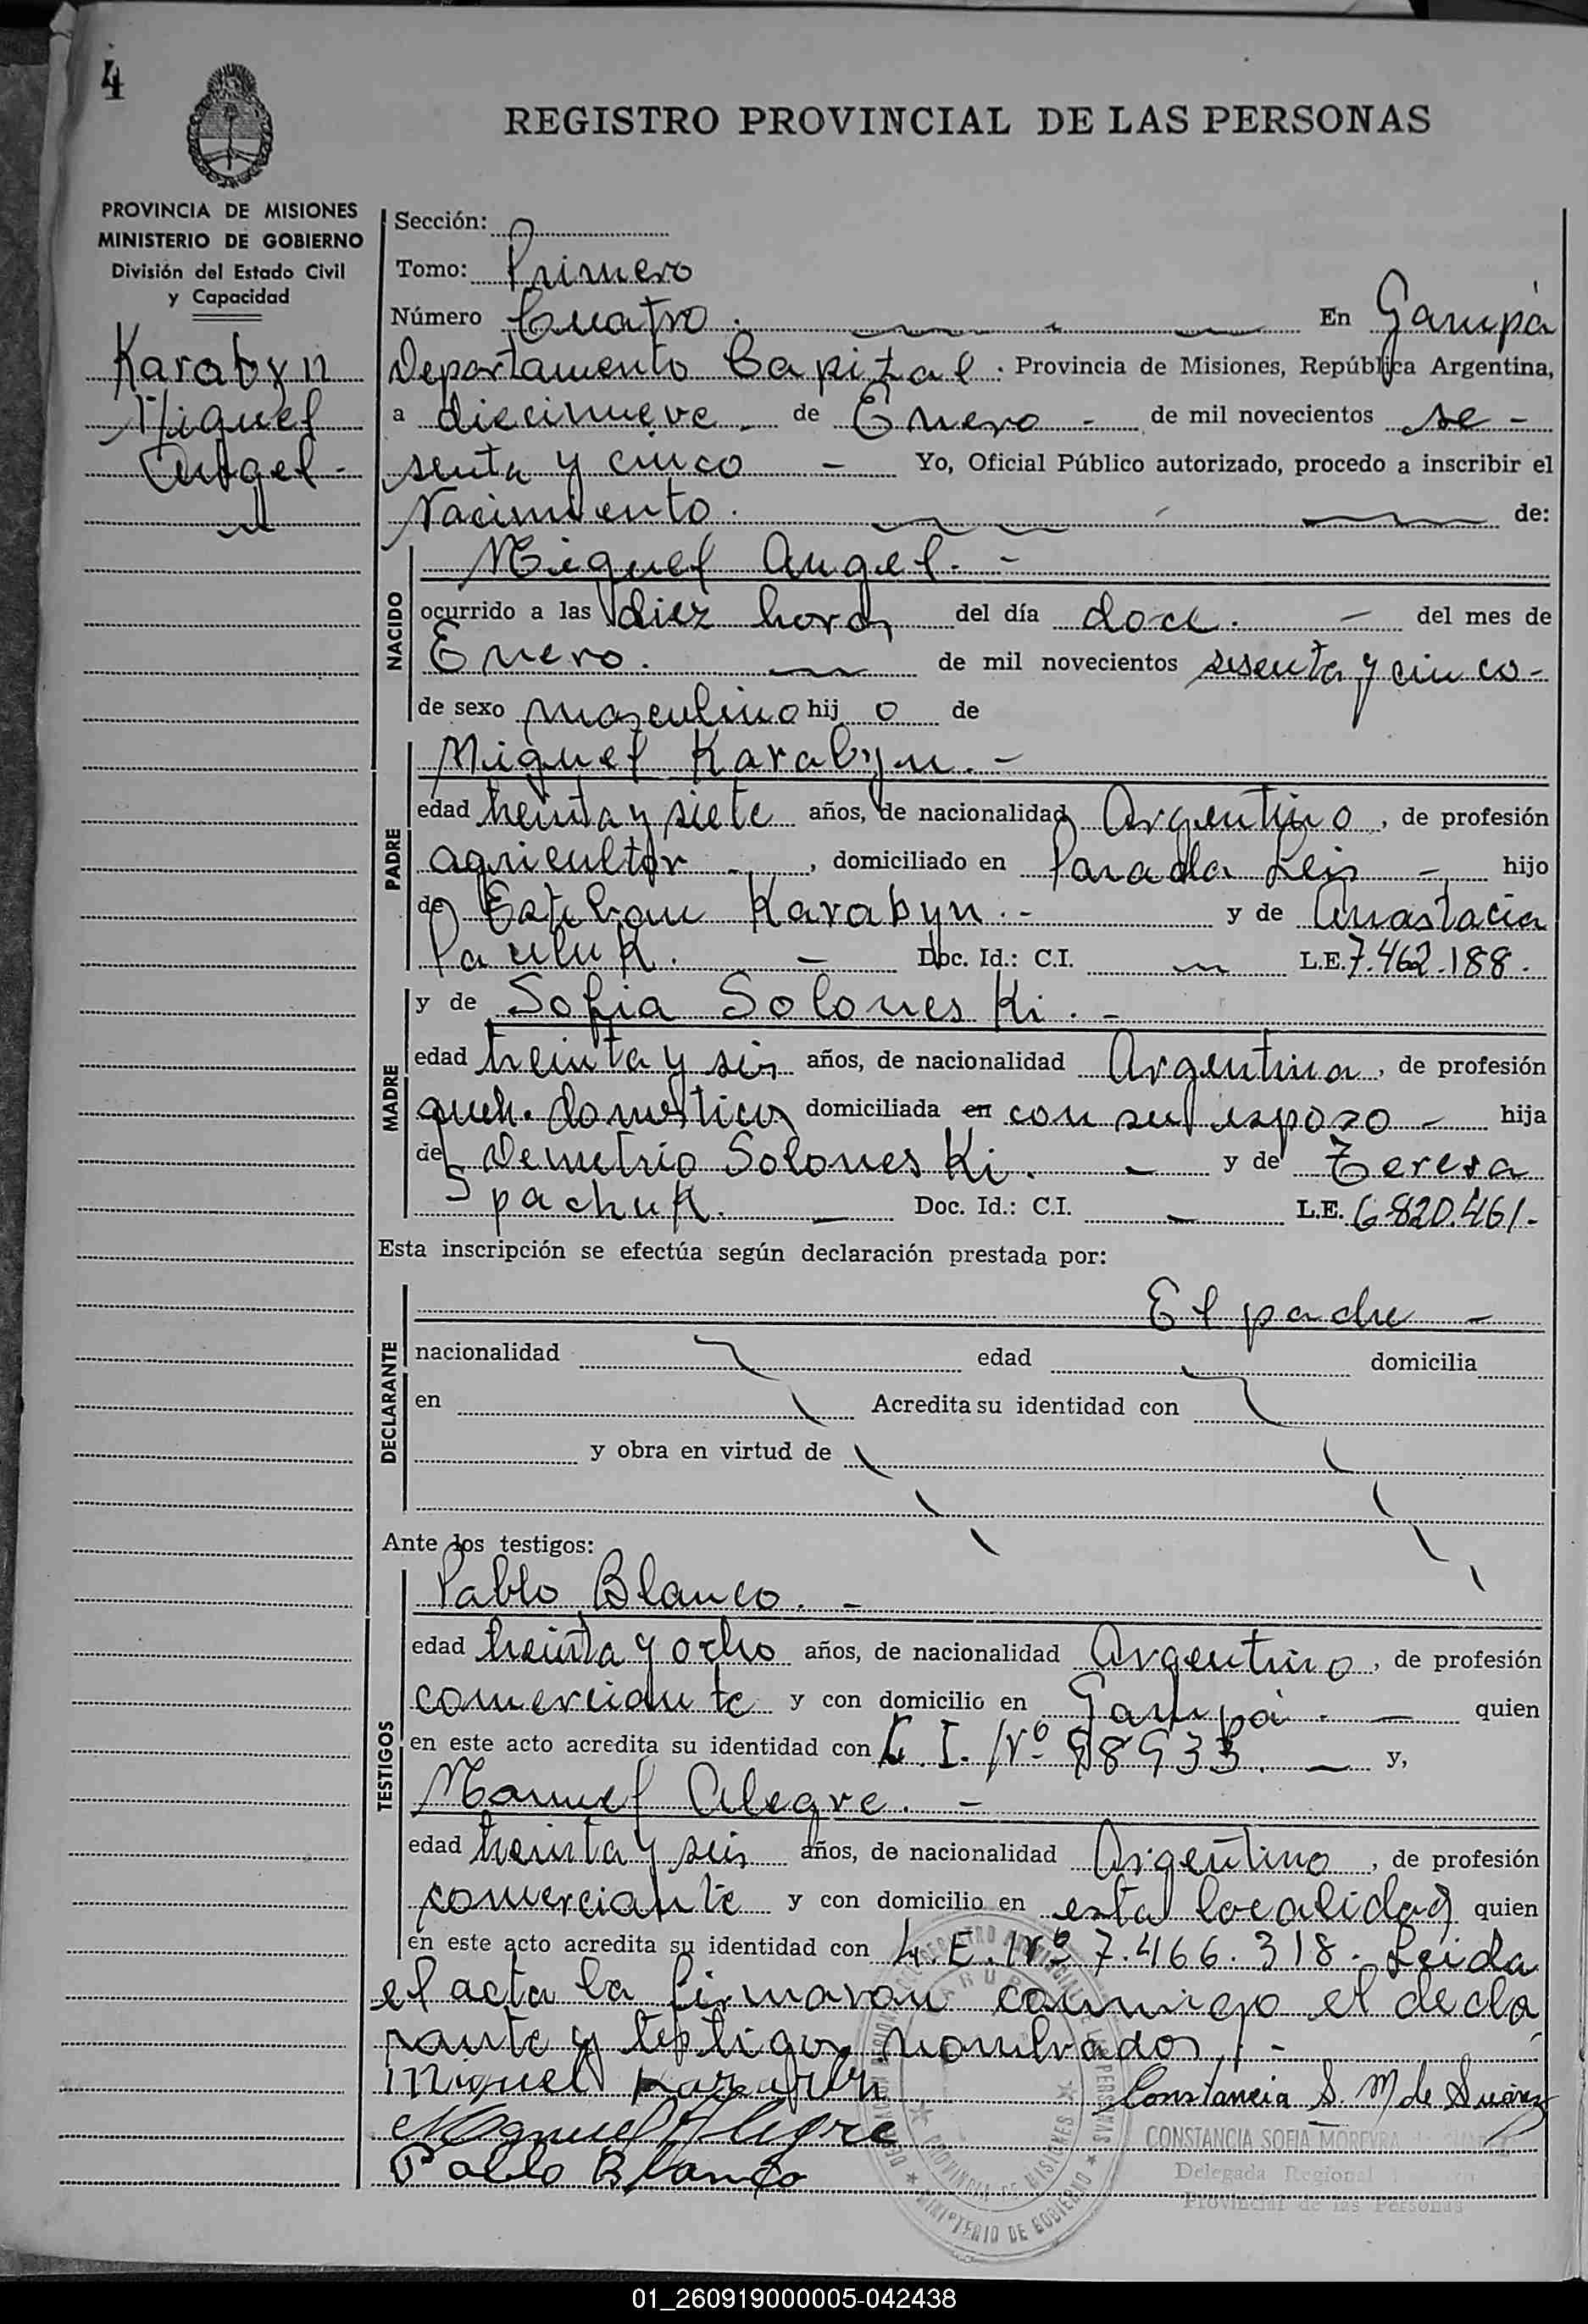 4
REGISTRO PROVINCIAL DE LAS PERSONAS
PROVINCIA DE MISIONES
MINISTERIO DE GOBIERNO
División del Estado Civil
y Capacidad
Karabyn
Miguel
Angel -
Sección:
Tomo: Primero
Número Cuatro. En Garupá
Departamento Capital. Provincia de Misiones, República Argentina,
a diecinueve - de Enero - de mil novecientos se -
senta y cinco - Yo, Oficial Público autorizado, procedo a inscribir el
Nacimiento. de:
NACIDO
Miguel Angel. -
ocurrido a las diez horas del día doce. - del mes de
Enero. de mil novecientos sesenta y cinco -
de sexo masculino hij o de
PADRE
Miguel Karabyn. -
edad treinta y siete años, de nacionalidad Argentino, de profesión
agricultor -, domiciliado en Parada Leis - hijo
de Esteban Karabyn. - y de Anastacia
Pauluk. - Doc. Id.: C.I. L.E. 7.462.188.
MADRE
y de Sofia Soloneski. -
edad treinta y seis años, de nacionalidad Argentina, de profesión
queh. domesticos domiciliada en con su esposo - hija
de Demetrio Soloneski. - y de Teresa
Spachuk. - Doc. Id.: C.I. - L.E. 6.820.461.-
Esta inscripción se efectúa según declaración prestada por:
DECLARANTE
El padre -
nacionalidad edad domicilia
en Acredita su identidad con
y obra en virtud de
Ante los testigos:
TESTIGOS
Pablo Blanco. -
edad treinta y ocho años, de nacionalidad Argentino, de profesión
comerciante y con domicilio en Garupá. - quien
en este acto acredita su identidad con C. I. Nº 98933. - y,
Manuel Alegre. -
edad treinta y seis años, de nacionalidad Argentino, de profesión
comerciante y con domicilio en esta localidad quien
en este acto acredita su identidad con L.E. Nº 7.466.318. Leida
el acta la firmaron conmigo el decla
rante y testigos nombrados. -
Miguel Karabin
Constancia S. M de Suárez
Manuel Alegre
CONSTANCIA SOFIA MOREYRA de
Pablo Blanco
Delegada Regional
Provincial de las Personas
PROVINCIA DE MISIONES
MINISTERIO DE GOBIERNO
01_260919000005-042438